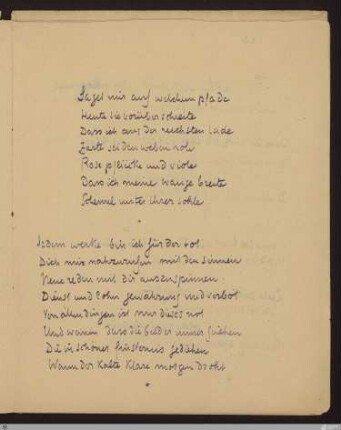 Saget mir auf welchem pfade
Heute sie vorüberschreite
Dass ich aus der reichsten lade
Zarte seidenweben hole
Rose pflücke und viole
Dass ich meine wange breite
Schemel unter ihrer sohle
*
Jedem werke bin ich fürder tot
Dich mir nahzurufen mit den sinnen
Neue reden mit dir auszuspinnen
Dienst und lohn gewährung und verbot
Von allen dingen ist nur dieses not
Und weinen dass die bilder immer fliehen
Die in schöner finsternis gediehen
Wann der kalte klare morgen droht
*